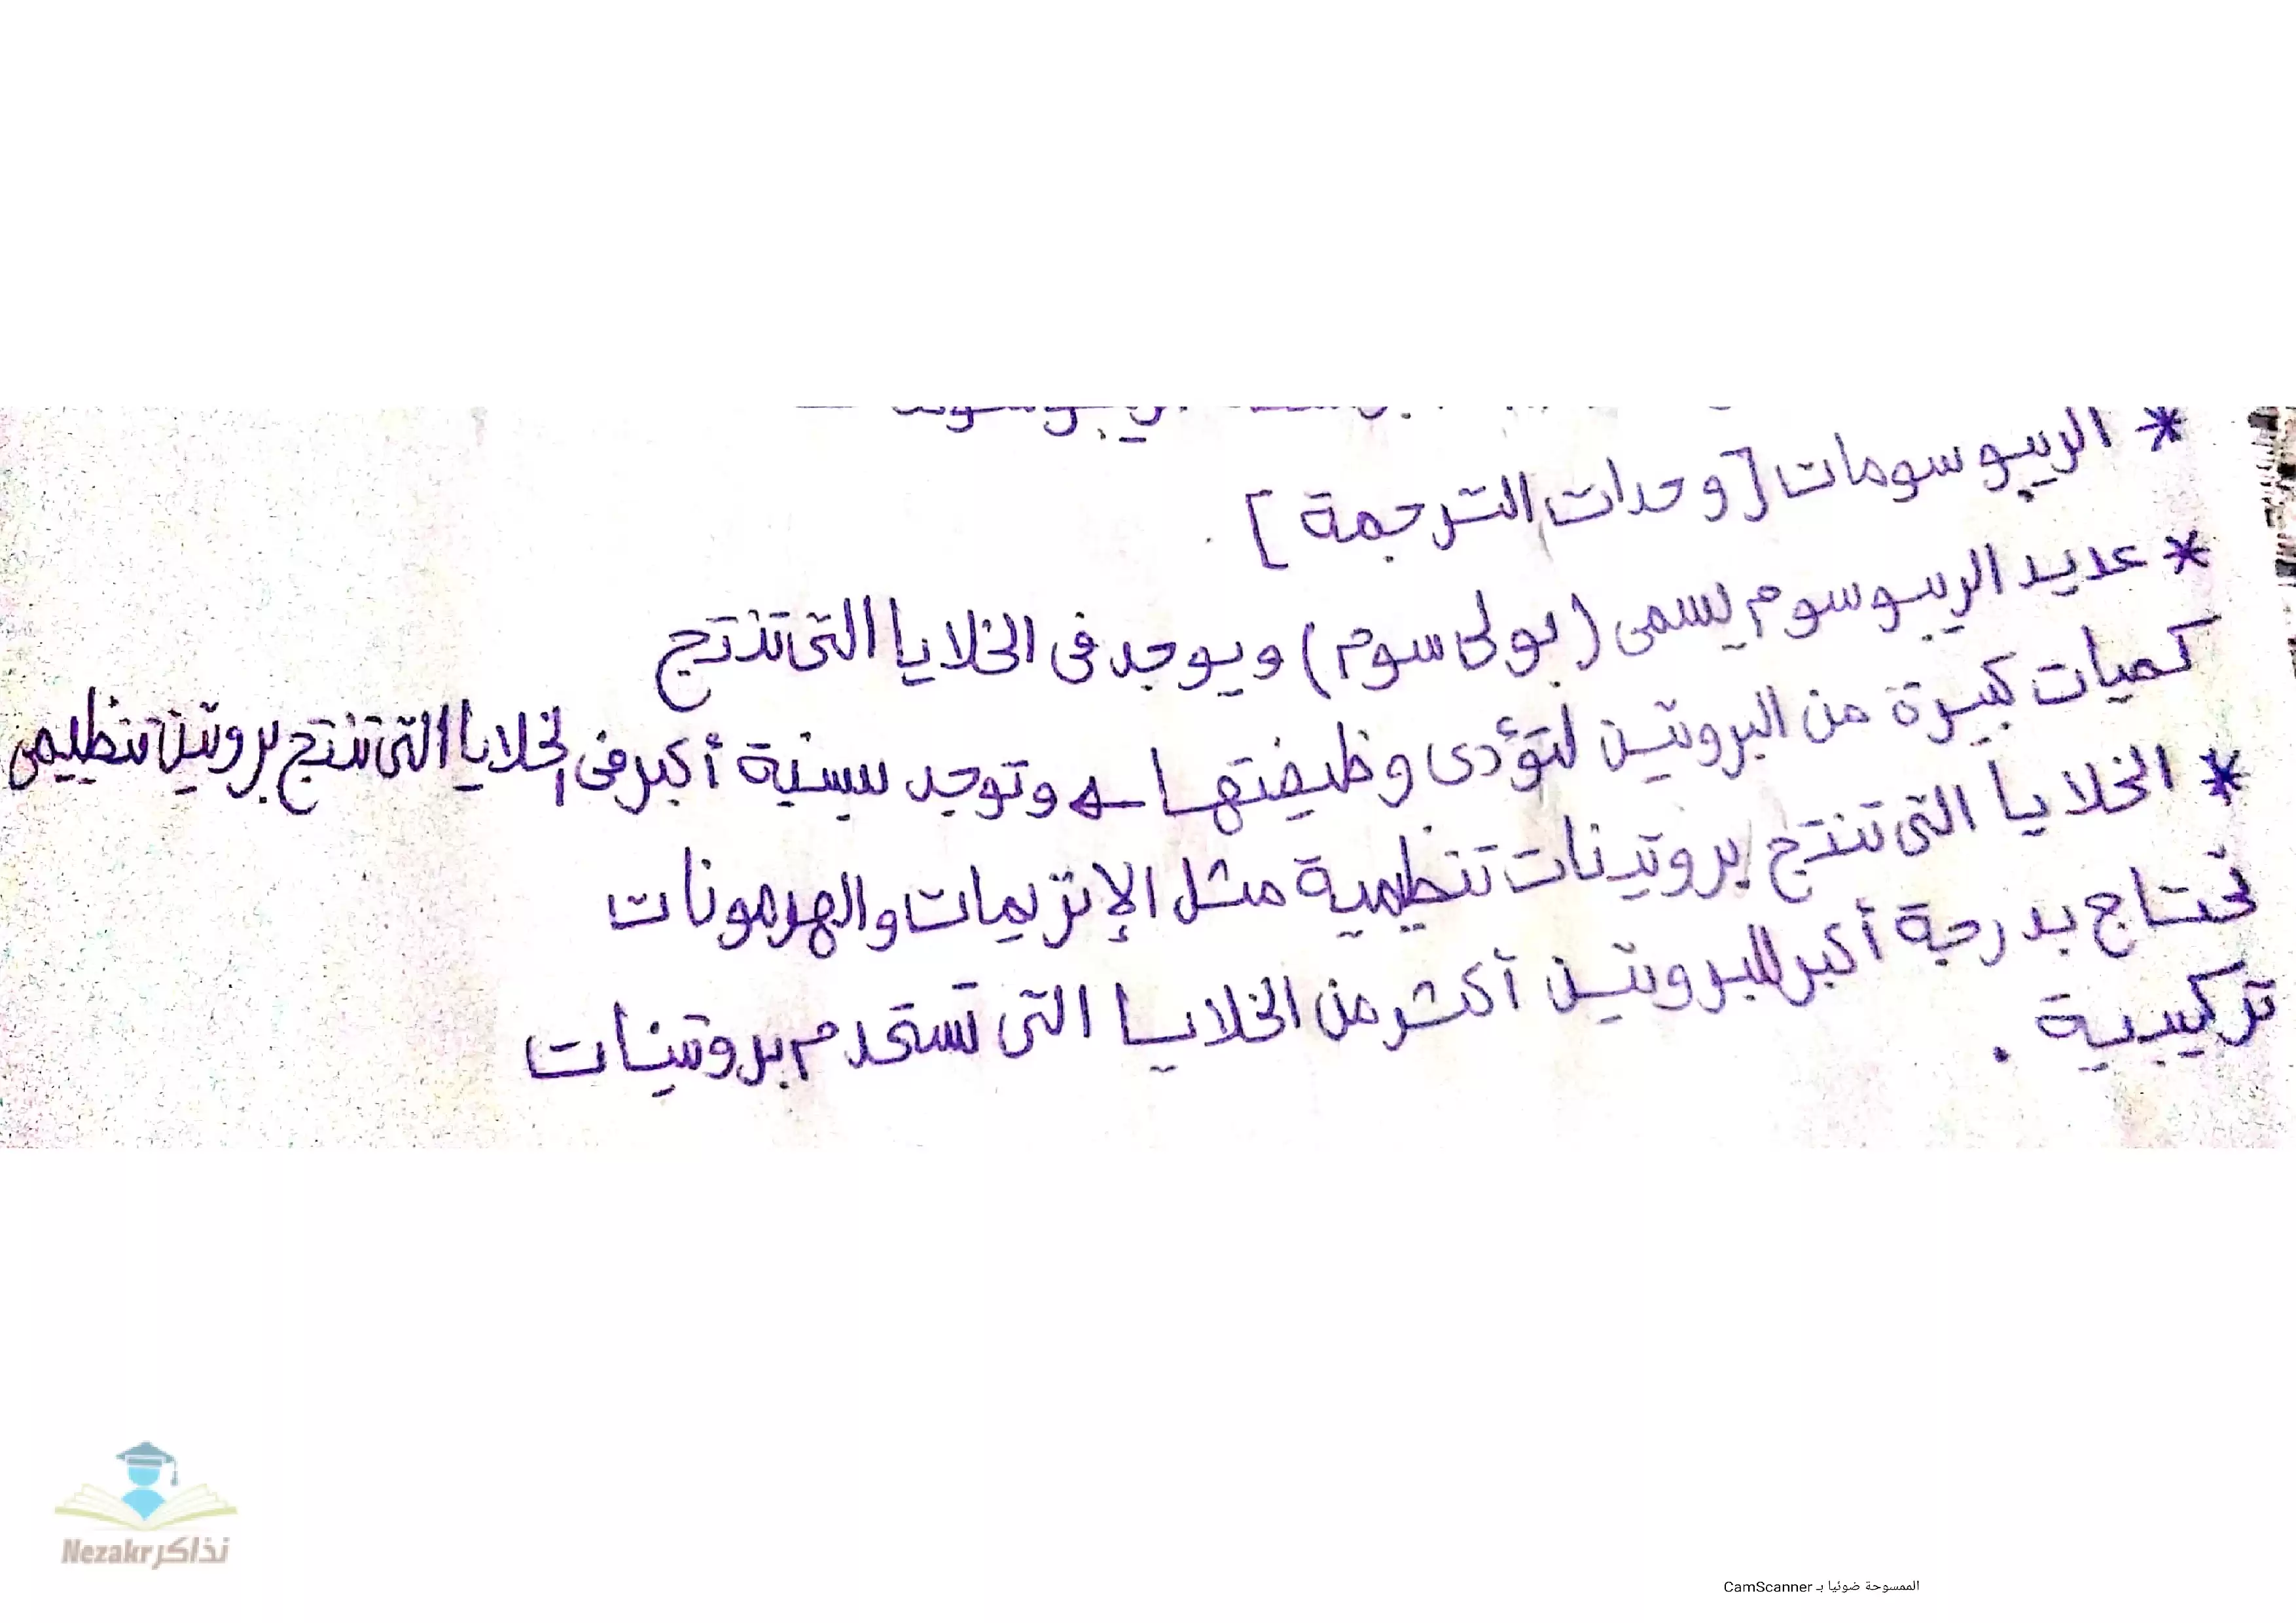 * الريبوسومات [وحدات الترجمة]
* عديد الريبوسوم يسمى (بولى سوم) ويوجد فى الخلايا التى تنتج
كميات كبيرة من البروتين لتؤدى وظيفتها وتوجد بنسبة أكبر فى الخلايا التى تنتج بروتين تنظيمى
* الخلايا التى تنتج بروتينات تنظيمية مثل الإنزيمات والهرمونات
تحتاج بدرجة أكبر للبروتين أكثر من الخلايا التى تستخدم بروتينات
تركيبية .
Nezakr نذاكر
الممسوحة ضوئيا بـ CamScanner